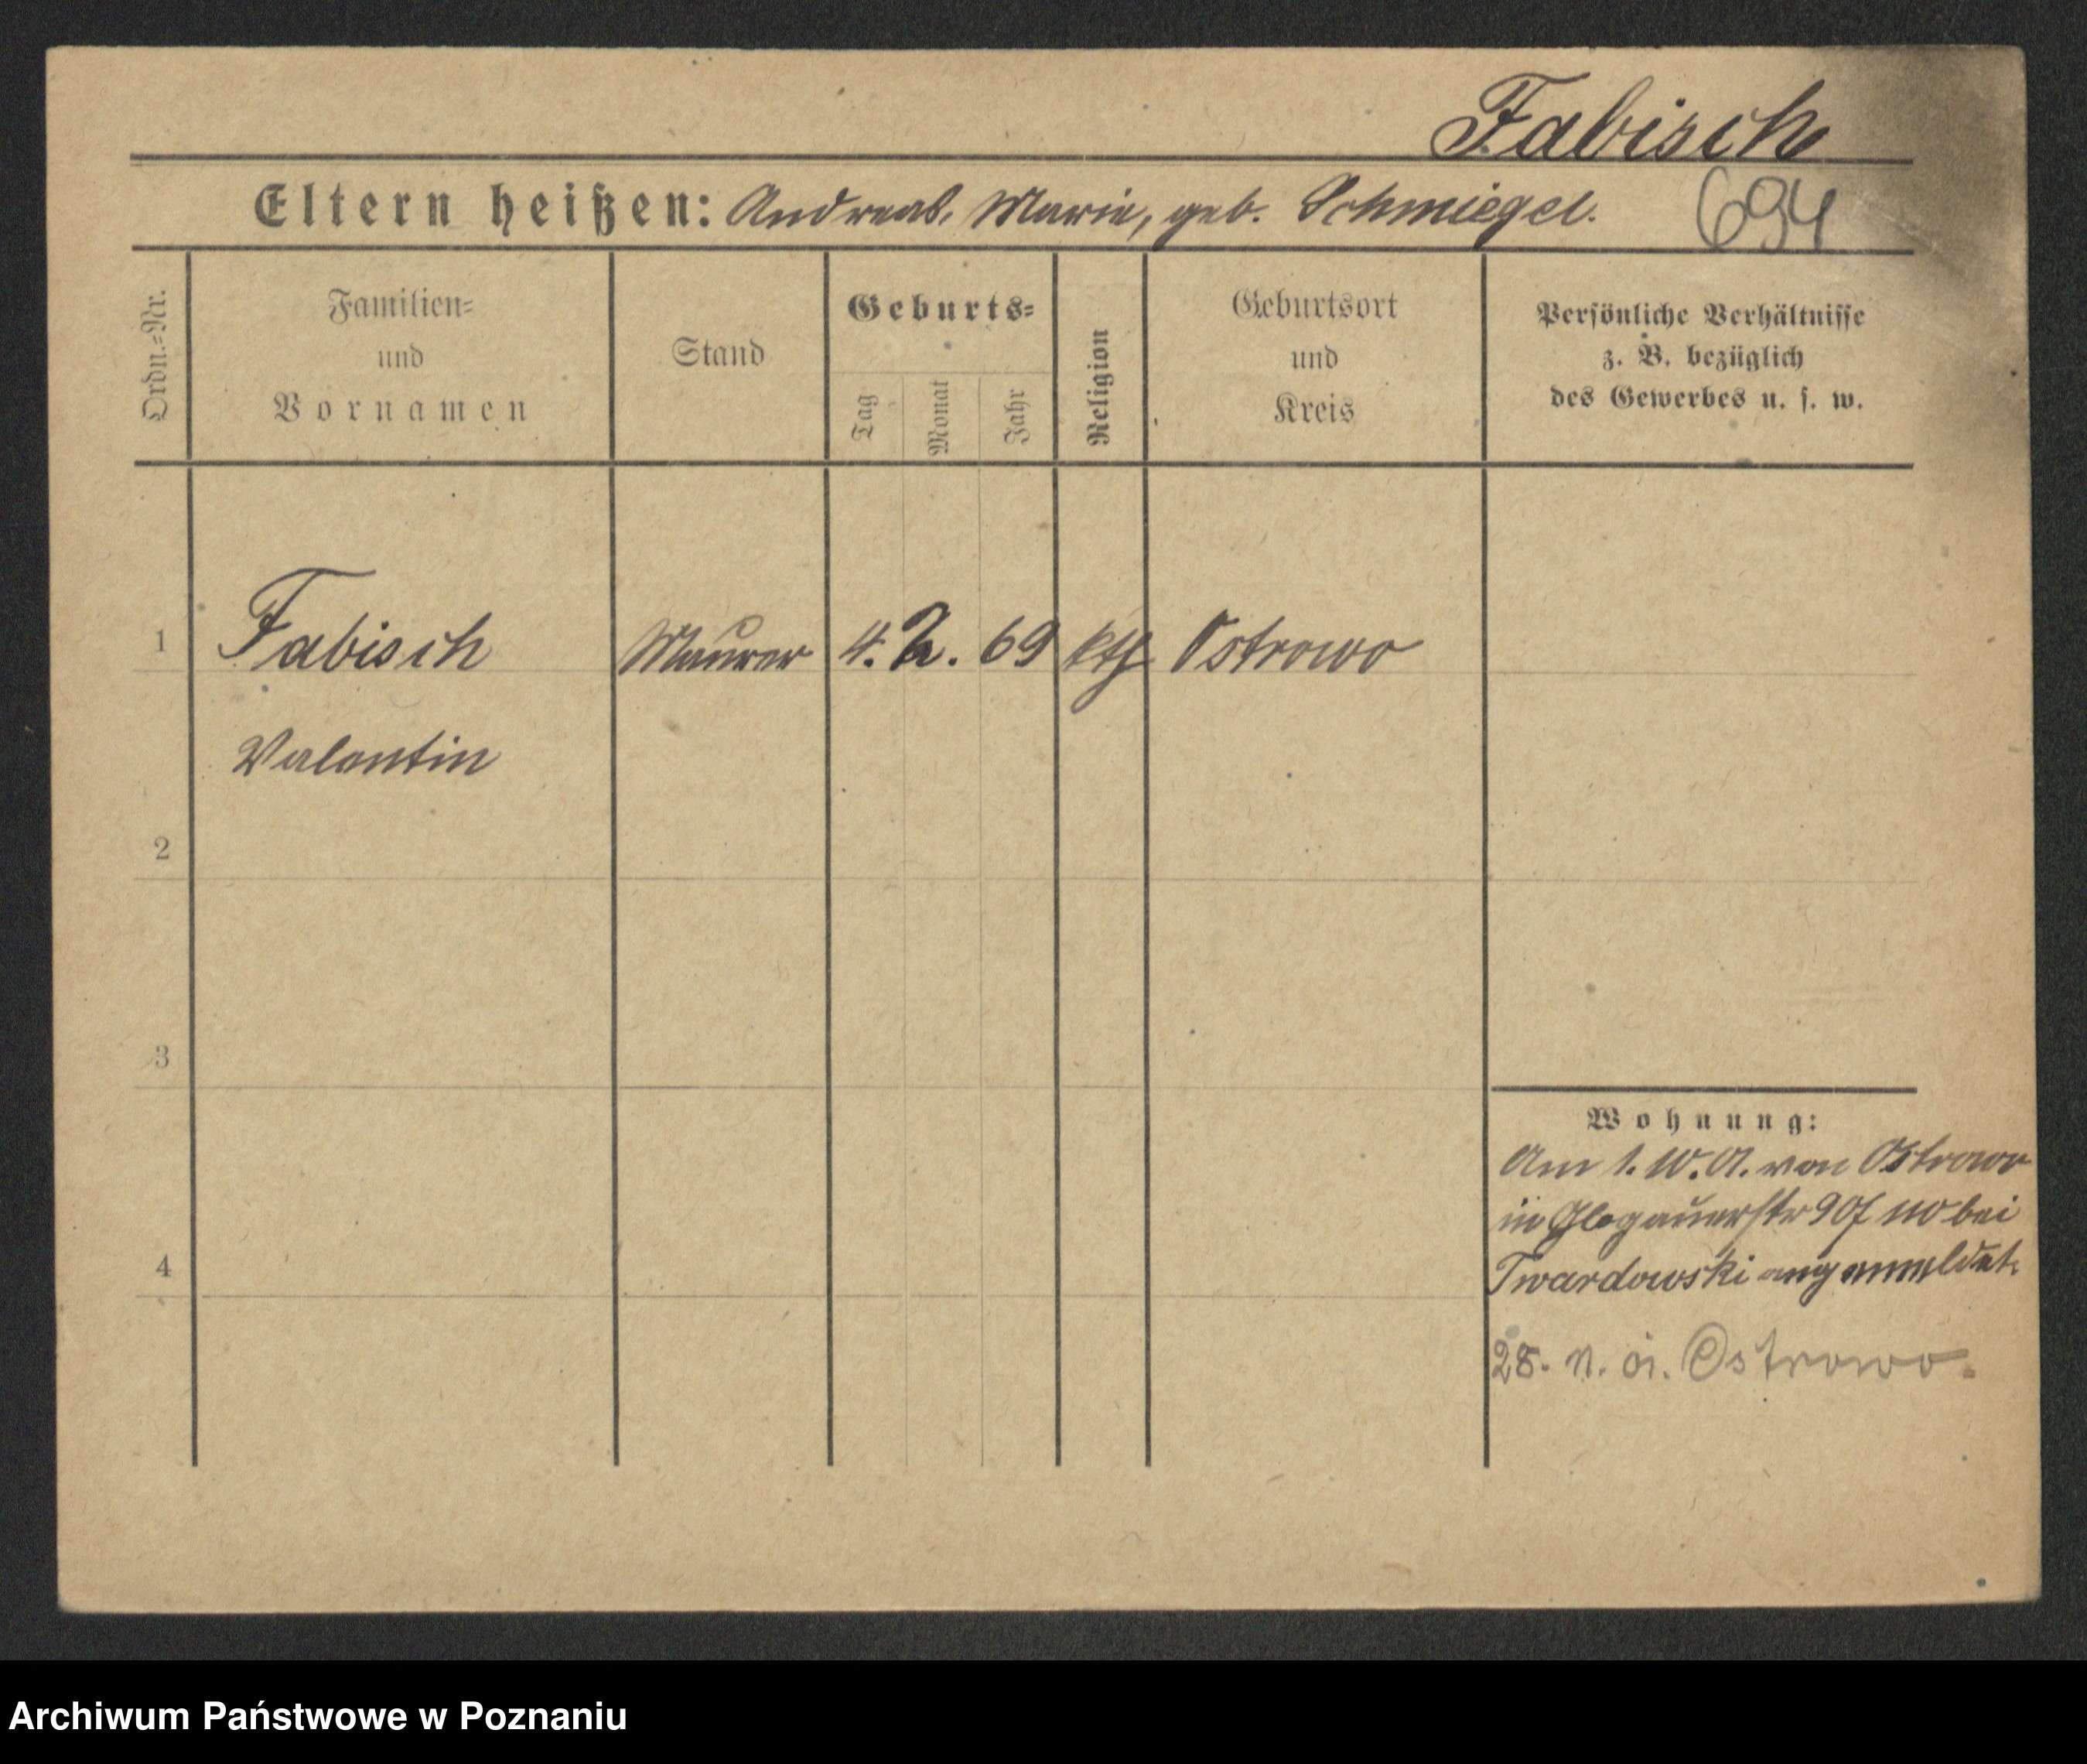 Fabisch
Eltern heißen: Andreas, Marie, geb. Schmiegel. 694
Ordn.-Nr.
Familien-
und
Vornamen
Stand
Geburts-
Tag
Monat
Jahr
Religion
Geburtsort
und
Kreis
Persönliche Verhältnisse
z. B. bezüglich
des Gewerbes u. s. w.
1 Fabisch Maurer 4. 2. 69 kth Ostrowo
Valentin
2
3
4
Wohnung:
Am 1. 10. 01. von Ostrowo
in Glogauerstr 90 bei
Twardowski angemeldet.
28. Ostrowo.
Archiwum Państwowe w Poznaniu